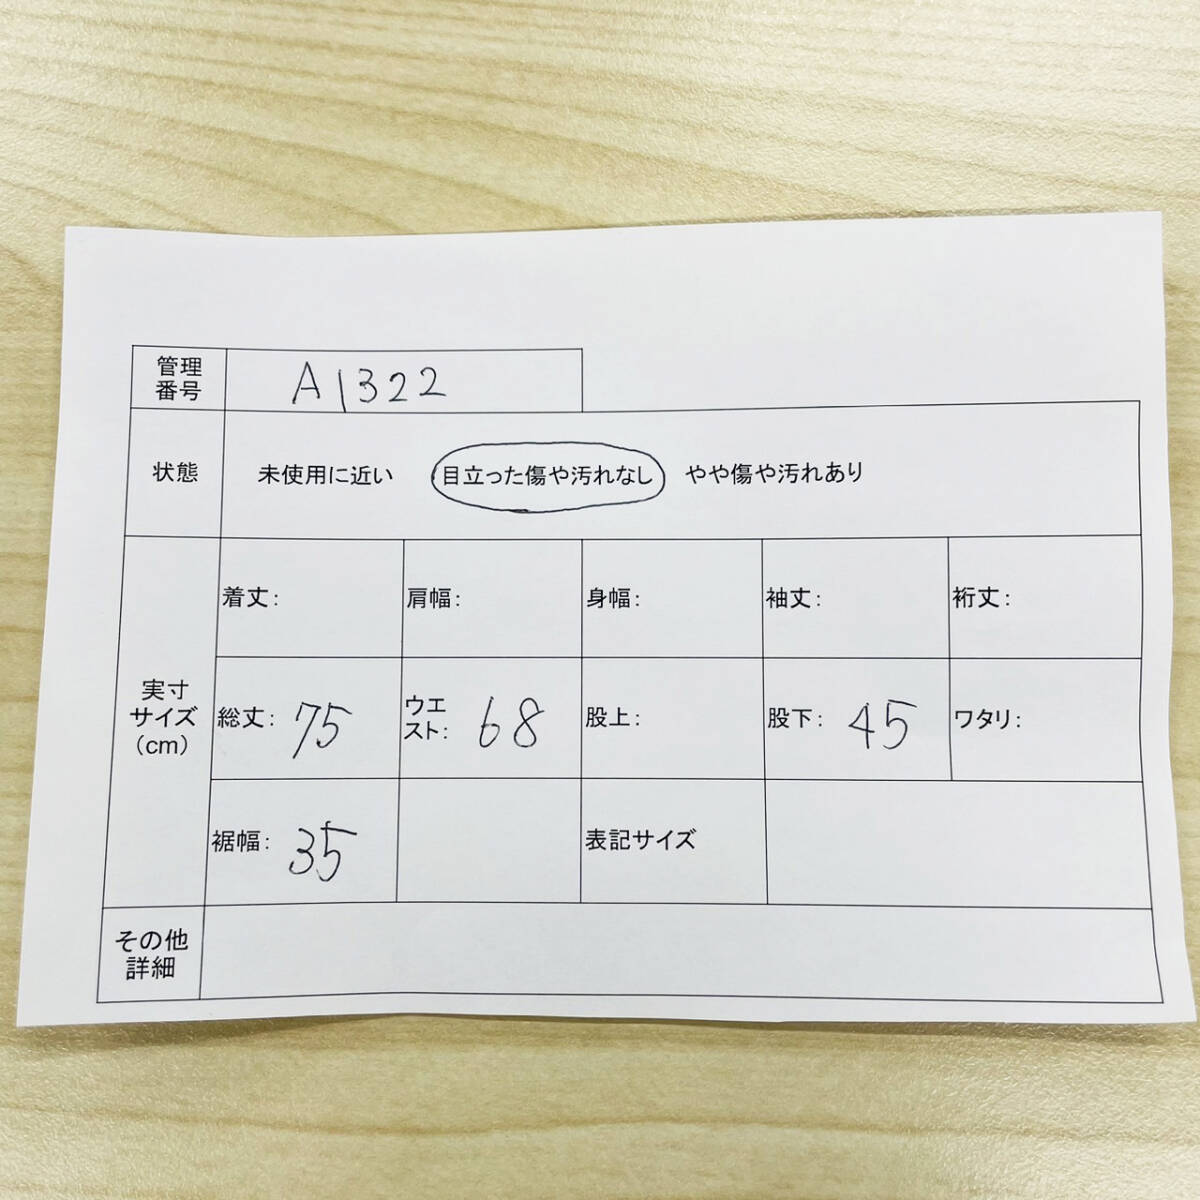 管理
番号
A1322
状態
未使用に近い 目立った傷や汚れなし やや傷や汚れあり
実寸
サイズ
(cm)
着丈: 肩幅: 身幅: 袖丈: 裄丈:
総丈: 75
ウエ
スト: 68
股上: 股下: 45 ワタリ:
裾幅: 35 表記サイズ
その他
詳細